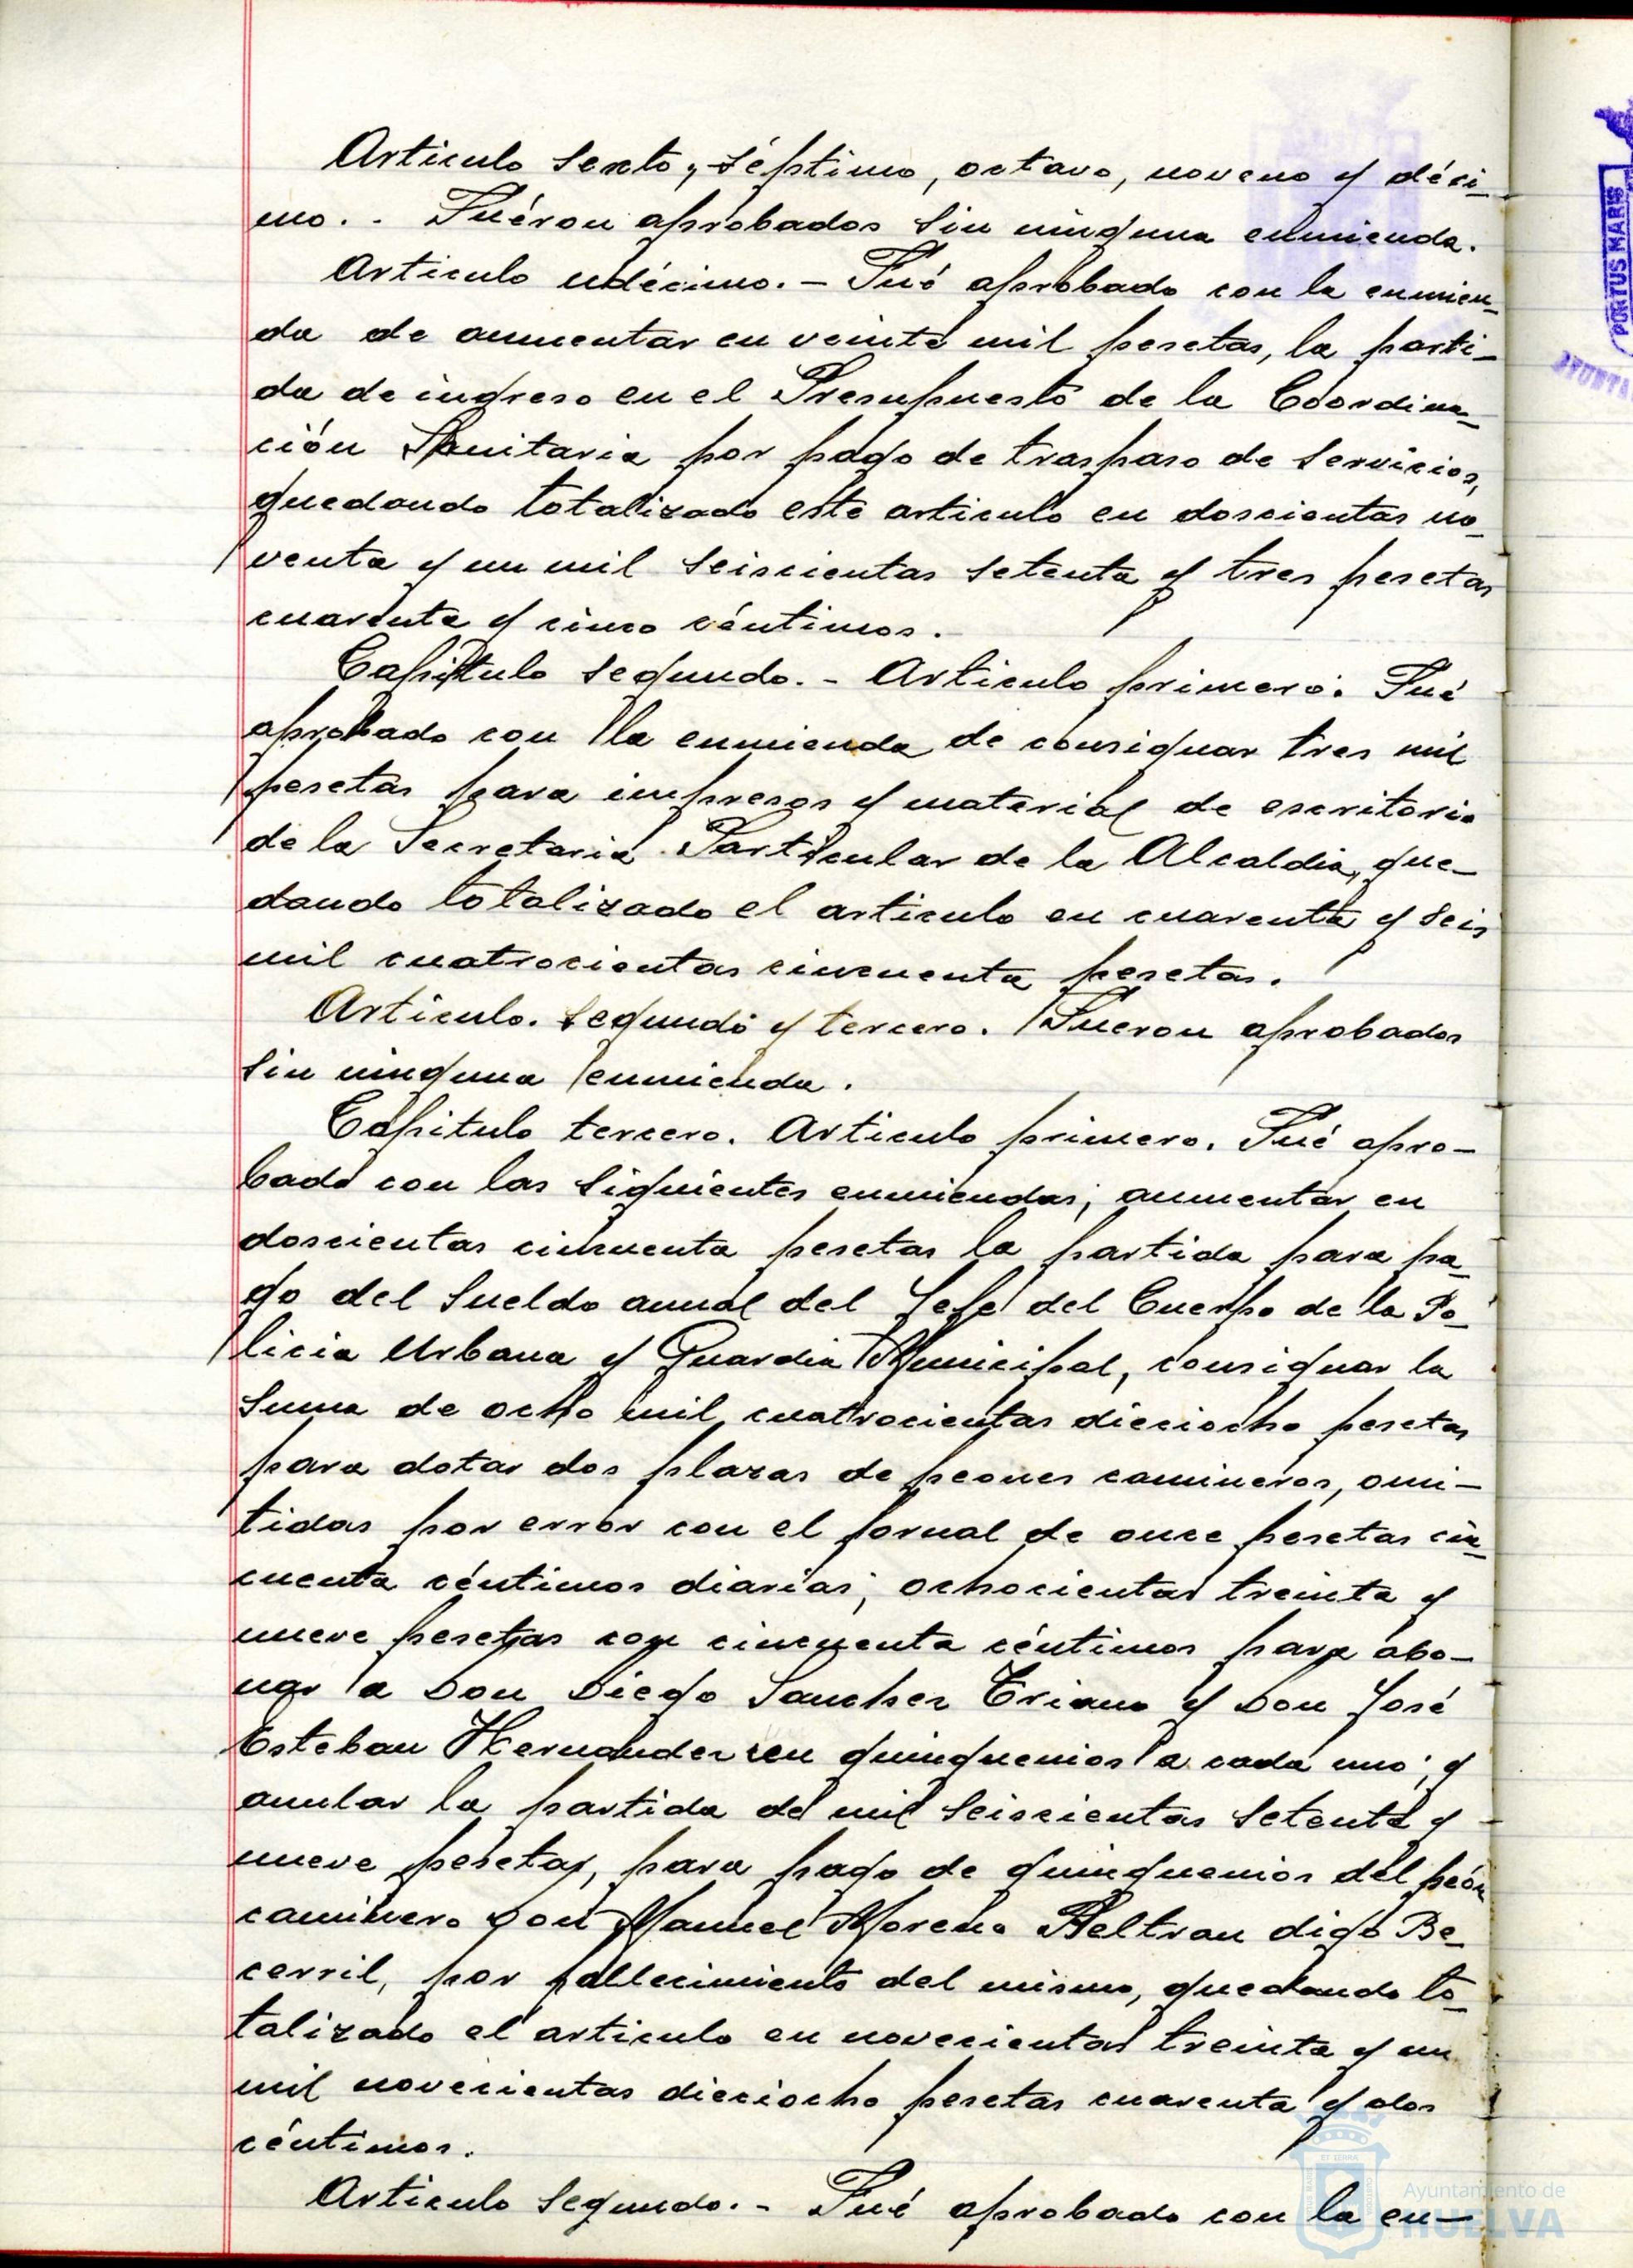 Articulo sexto, séptimo, octavo, noveno y déci-
mo. - Fuéron aprobados sin ninguna enmienda.
Articulo udécimo. - Fué aprobado con la enmien-
da de aumentar en veinte mil pesetas, la parti-
da de ingreso en el Presupuesto de la Coordina-
ción Sanitaria por pago de traspaso de servicios,
quedando totalizado este articulo en doscientas no-
venta y un mil seiscientas setenta y tres pesetas
cuarenta y cinco céntimos.
Capitulo segundo. - Articulo primero. Fué
aprobado con la enmienda de consignar tres mil
pesetas para impresos y material de escritorio
de la Secretaria Particular de la Alcaldia, que-
dando totalizado el articulo en cuarenta y seis
mil cuatrocientas cincuenta pesetas.
Articulo. segundo y tercero. Fueron aprobados
sin ninguna enmienda.
Capitulo tercero. Articulo primero. Fué apro-
bado con las siguientes enmiendas; aumentar en
doscientas cincuenta pesetas la partida para pa-
go del sueldo anual del Jefe del Cuerpo de la Po-
licia Urbana y Guardia Municipal, consignar la
suma de ocho mil cuatrocientas dieciocho pesetas
para dotar dos plazas de peones camineros, omi-
tidas por error con el jornal de once pesetas cin-
cuenta céntimos diarias; ochocientas treinta y
nueve pesetas con cincuenta céntimos para abo-
nar a Don Diego Sanchez Triano y Don José
Esteban Hernandez en quinquenios a cada uno; y
anular la partida de mil seiscientas setenta y
nueve pesetas, para pago de quinquenios del peón
caminero Don Manuel Moreno Beltran digo Be-
cerril, por fallecimiento del mismo, quedando to-
talizado el articulo en novecientas treinta y un
mil novecientas dieciocho pesetas cuarenta y dos
céntimos.
Articulo segundo. - Fué aprobado con la en-
PORTUS MARIS
AYUNTA
Ayuntamiento de
HUELVA